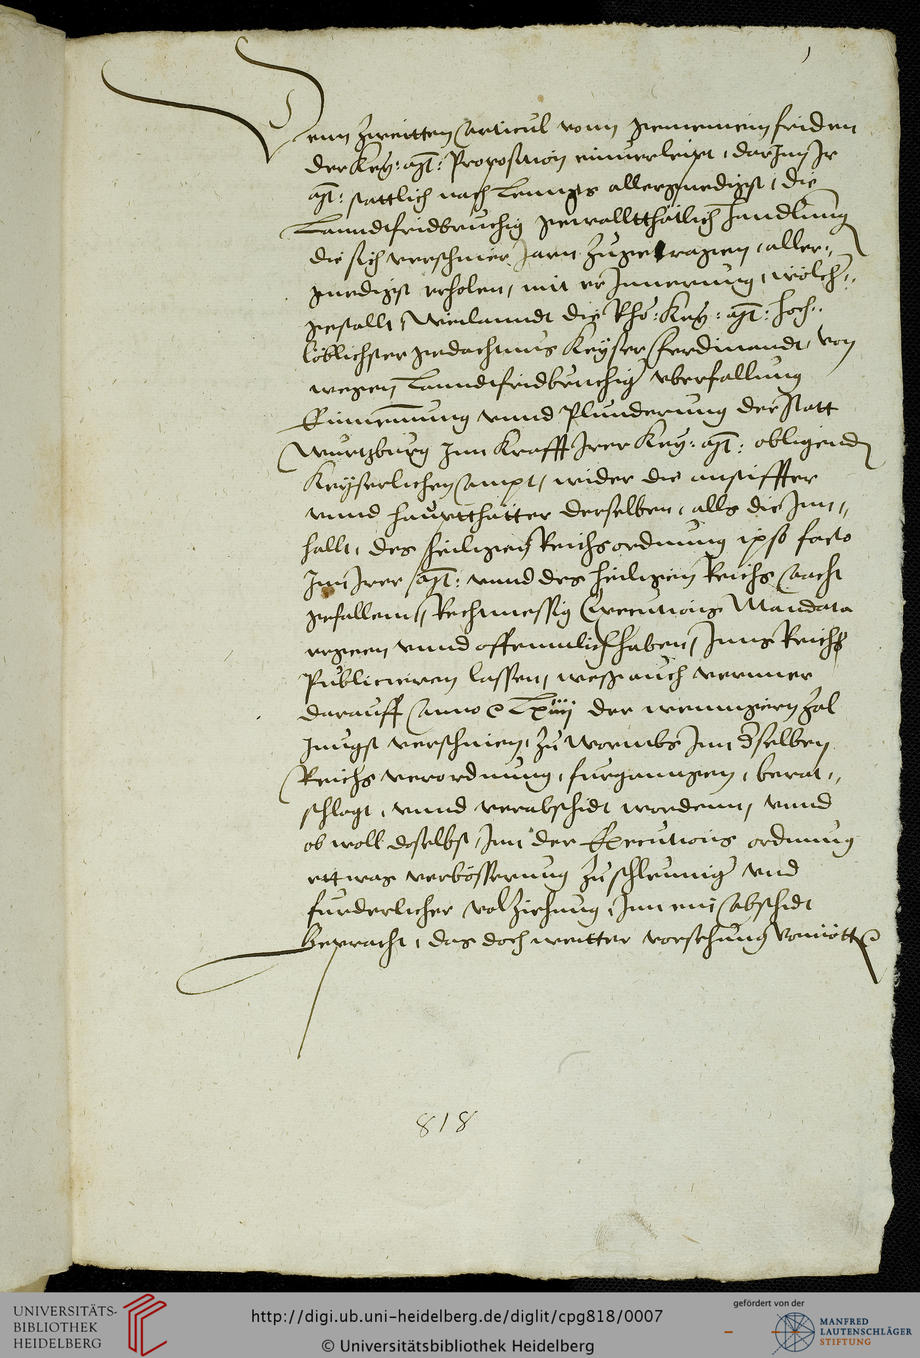 1
Denn zweitten Articul vonn gemeinem friden
der Key: Mt: Proposition einverleipt, darInn Ir
Mt: stattlich nach Lenngs allergnedigst, die
Lanndtfridbruchig gewalltthätlich handlung
die sich verschiner Jarn zugetragen, aller-
gnedigst erholen, mit erInnerung, wölcher
gestallt, Weilanndt die Rho: Key: Mt: Hoch-
löblichster gedachtnus Keyser Ferdinandt, von
wegen Lanndtfridbruchiger vberfallung
Einnemung vnnd Plunderung der Statt
Wurtzburg Inn Krafft Irer Key: Mt: obligend
Keyserlichen Ampt, wider die anstiffter
vnnd hauptthätter derselben, alls die Inn-
hallt, des heiligen Reichs ordnung ipso facto
Inn Irer Mt: vnnd des heiligen Reichs Aacht
gefallenn, Rechtmessig Executions Mandata
ergeen vnnd offennlich haben, Inns Reich
Publicieren lassen, weß auch verrner
darauff Anno LXiiij der wenigern Zal
Jungst verschinen, zu Wormbs Inn derselben
Reichs verordnung, furganngen, berat-
schlagt, vnnd verabschidt wordenn, vnnd
ob woll doselbst, Inn der Executions ordnung
ettwas verbösserung zu schleuniger vnd
furderlicher volziehung, Inn ein Abschidt
gepracht, das doch weitter vorsehung vonnött
818
UNIVERSITÄTS-
BIBLIOTHEK
HEIDELBERG
http://digi.ub.uni-heidelberg.de/diglit/cpg818/0007
© Universitätsbibliothek Heidelberg
gefördert von der
MANFRED
LAUTENSCHLÄGER
STIFTUNG